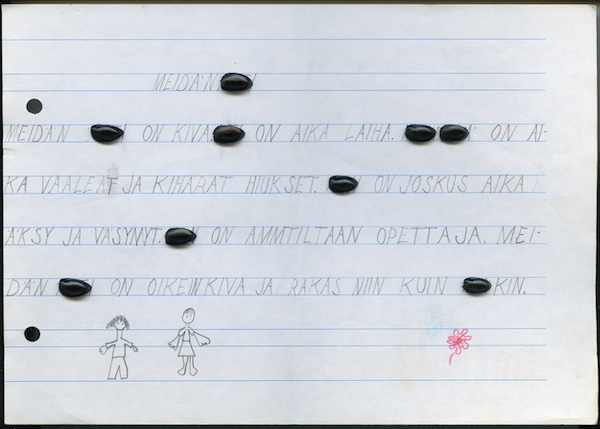 MEIDÄN
MEIDÄN ON KIVA ON AIKA LAIHA. ON AI-
KA VAALEAT JA KIHARAT HIUKSET. ON JOSKUS AIKA
ÄKSY JA VÄSYNYT. ON AMMTILTAAN OPETTAJA. MEI-
DÄN ON OIKEIN KIVA JA RAKAS NIIN KUIN KIN.